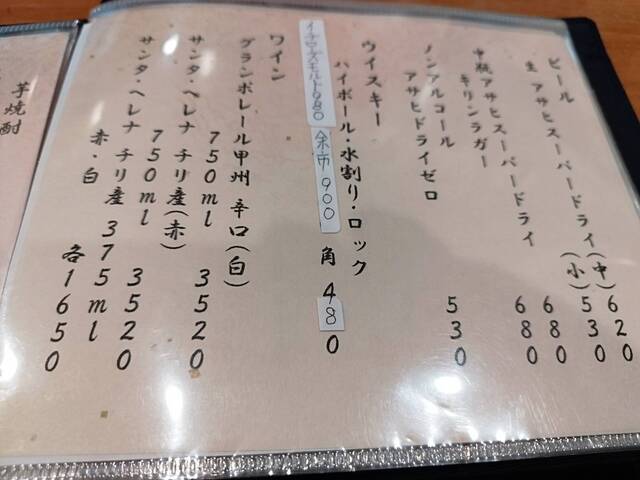 ビール
生 アサヒスーパードライ(中) 620
(小) 530
中瓶 アサヒスーパードライ 680
キリンラガー 680
ノンアルコール
アサヒドライゼロ 530
ウイスキー
ハイボール・水割り・ロック
イチローズモルト980 余市900 角 480
ワイン
グランポレール甲州 辛口(白)
750ml 3520
サンタ・ヘレナ チリ産(赤)
750ml 3520
サンタ・ヘレナ チリ産 375ml
赤・白 各1650
芋焼酎